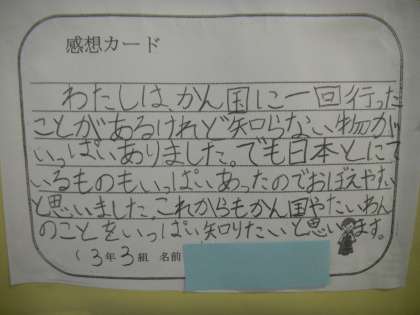 感想カード
わたしは、かん国に一回行った
ことがあるけれど知らない物が
いっぱいありました。でも日本とにて
いるものもいっぱいあったのでおぼえやすい
と思いました。これからもかん国やたいわん
のことをいっぱい知りたいと思います。
(3年3組 名前